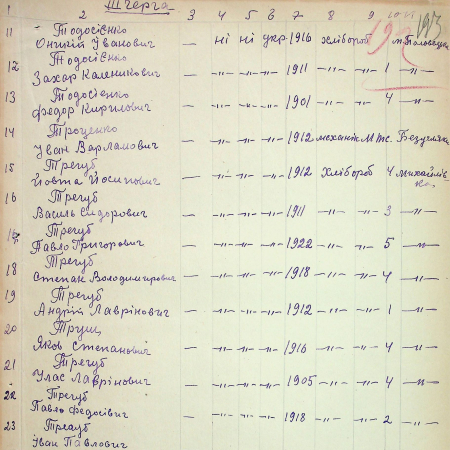 1 2 3 4 5 6 7 8 9 10
11 Тодосієнко
Оникій Іванович — ні ні укр. 1916 хлібороб
12 Тодосієнко
Захар Каленикович — -"- -"- -"- 1911 -"- -"- 1 -"-
13 Тодосієнко
Федор Кирилович — -"- -"- -"- 1901 -"- 4 -"-
14 Троценко
Іван Варламович — -"- -"- -"- 1912 механік МТС.
15 Трегуб
Йовта Йосипович — -"- -"- -"- 1912 хлібороб 4 Михайлів-
ка
16 Трегуб
Василь Сидорович — -"- -"- -"- 1911 -"- -"- 3 -"-
Трегуб
Павло Григорович — -"- -"- -"- 1922 -"- -"- 5 -"-
18 Трегуб
Степан Володимирович — -"- -"- -"- 1918 -"- -"- 4 -"-
19 Трегуб
Андрій Лаврінович — -"- -"- -"- 1912 -"- -"- 1 -"-
20 Труш
Яков Степанович — -"- -"- -"- 1916 -"- -"- 4 -"-
21 Трегуб
Улас Лаврінович — -"- -"- -"- 1905 -"- -"- 4 -"-
22 Трегуб
Павло Федосівич — -"- -"- -"- 1918 -"- -"- 2 -"-
23 Трегуб
Іван Павлович